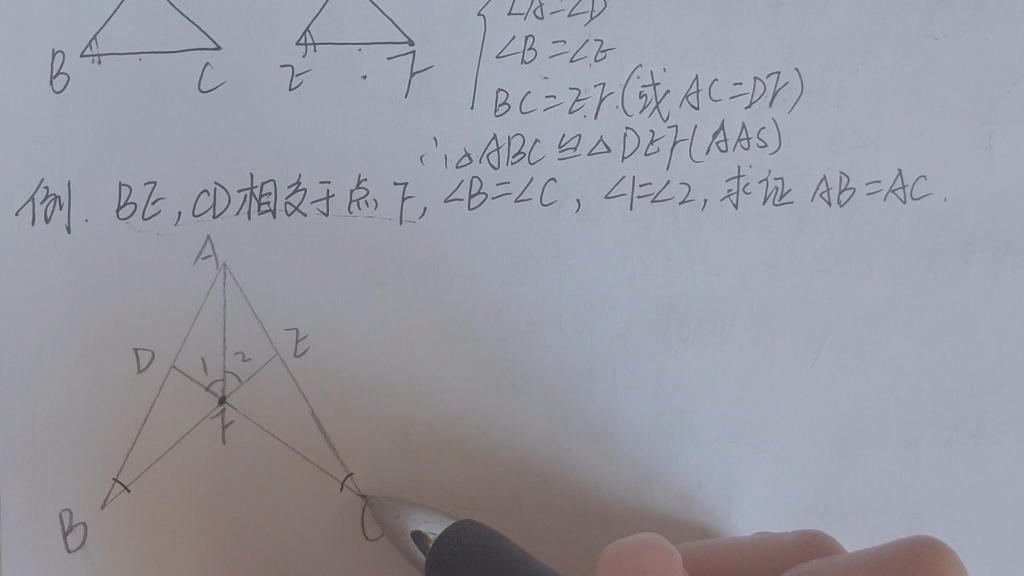 ∠A=∠D
B C E F ∠B=∠E
BC=EF(或AC=DF)
∴△ABC≌△DEF(AAS)
例. BE,CD相交于点F,∠B=∠C,∠1=∠2,求证AB=AC.
A
D 1 2 E
F
B C